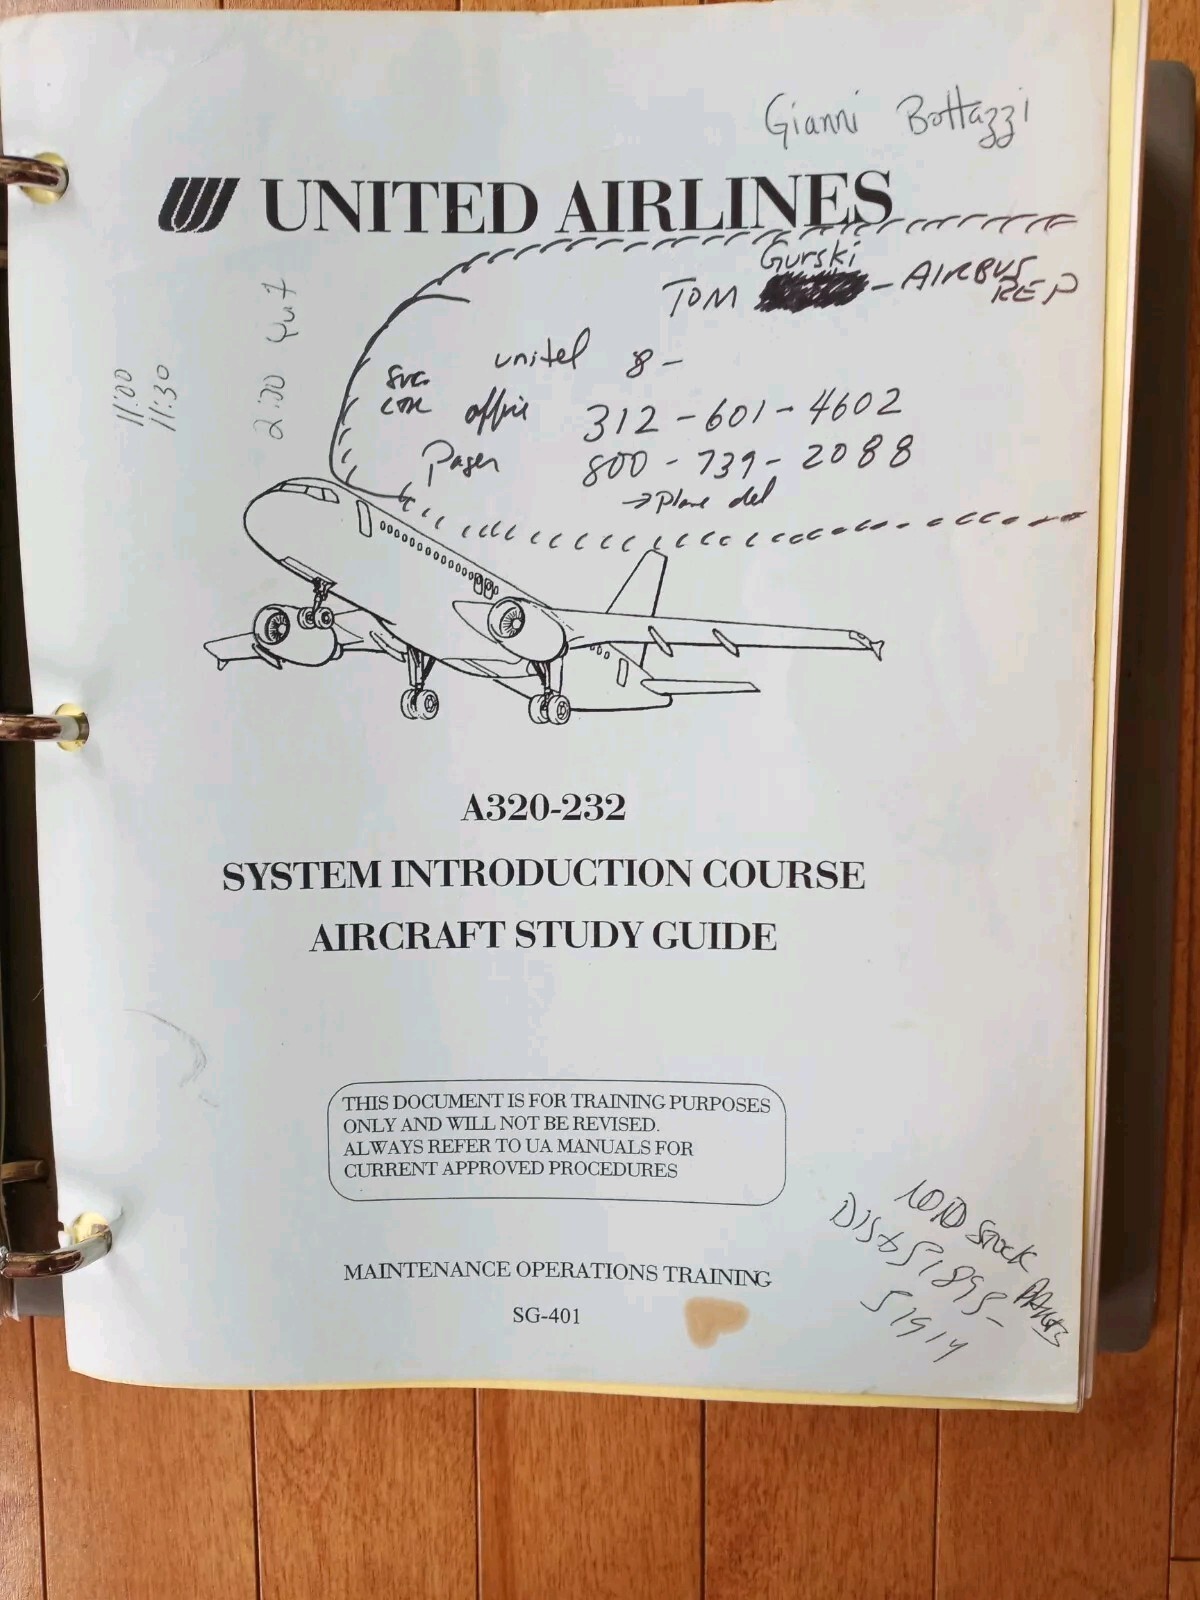 Gianni Bottazzi
UNITED AIRLINES
Gurski
TOM - AIRBUS
REP
united 8-
svc.
office 312-601-4602
Pager 800-739-2088
→ Plane del
11:00
11:30
2:00
A320-232
SYSTEM INTRODUCTION COURSE
AIRCRAFT STUDY GUIDE
THIS DOCUMENT IS FOR TRAINING PURPOSES
ONLY AND WILL NOT BE REVISED.
ALWAYS REFER TO UA MANUALS FOR
CURRENT APPROVED PROCEDURES
MAINTENANCE OPERATIONS TRAINING
SG-401
Stock
PARTS
51895-
51914